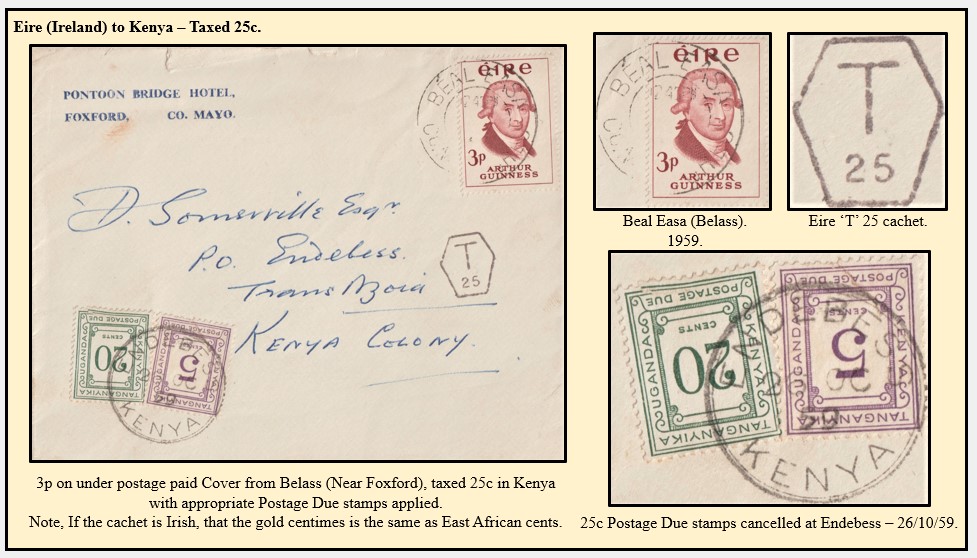 Eire (Ireland) to Kenya – Taxed 25c.
PONTOON BRIDGE HOTEL,
FOXFORD, CO. MAYO.
BÉAL
ÉIRE
3p
ARTHUR
GUINNESS
D. Somerville Esqr.
P.O. Endebess.
Trans Nzoia
Kenya Colony.
T
25
POSTAGE DUE
CENTS
20
UGANDA
KENYA
TANGANYIKA
POSTAGE DUE
CENTS
5
UGANDA
KENYA
TANGANYIKA
KENYA
3p on under postage paid Cover from Belass (Near Foxford), taxed 25c in Kenya
with appropriate Postage Due stamps applied.
Note, If the cachet is Irish, that the gold centimes is the same as East African cents.
BÉAL
ÉIRE
3p
ARTHUR
GUINNESS
Beal Easa (Belass).
1959.
T
25
Eire ‘T’ 25 cachet.
POSTAGE DUE
CENTS
20
UGANDA
KENYA
TANGANYIKA
POSTAGE DUE
CENTS
5
UGANDA
KENYA
TANGANYIKA
KENYA
25c Postage Due stamps cancelled at Endebess – 26/10/59.